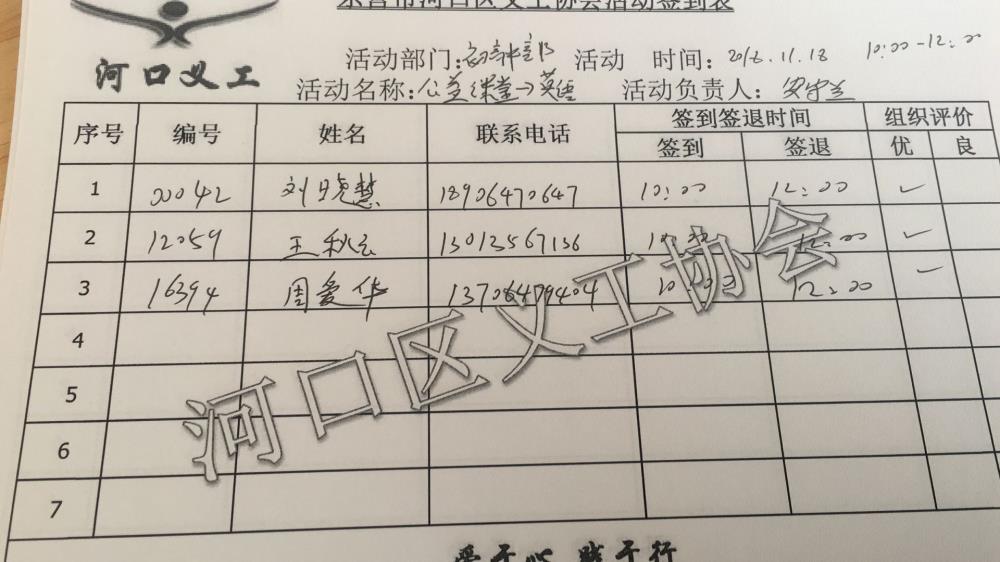 东营市河口区义工协会活动签到表
河口义工
活动部门: 活动 时间: 2016.11.18 10:00-12:00
活动名称: 公益课堂→英语 活动负责人:
序号 编号 姓名 联系电话 签到签退时间 组织评价
签到 签退 优 良
1 00042 刘晓慧 18906470647 10:00 12:00 ✓
2 12059 王秋云 13013567136 10:00 12:00 ✓
3 16394 周爱华 13706479404 10:00 12:00 ✓
4
5
6
7
河口区义工协会
爱于心 践于行